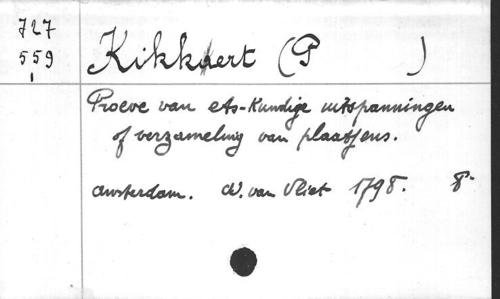 727
559
Kikkert (P )
Proeve van ets-kundige uitspanningen
of verzameling van plaatjens.
Amsterdam. W. van Vliet 1798. 8º